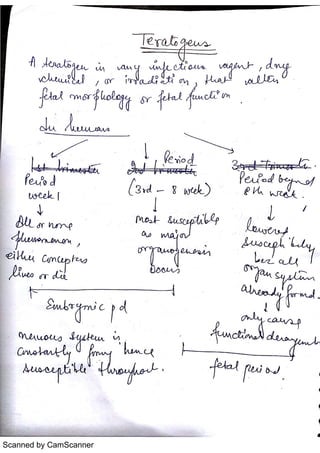 Teratogens
A teratogen is any infectious agent, drug
chemical, or irradiation, that alters
fetal morphology or fetal function.
In humans
1st trimester
2nd trimester
3rd trimester.
Period
week 1
Period
(3rd - 8 week)
Period beyond
8th week.
All or none
phenomenon,
either conceptus
lives or die
most susceptible
as major
organogenesis
occurs
lowered
susceptibility
bcz all
organ system
already formed.
only cause
functional derangement
Embryonic pd
fetal period
nervous system is
constantly forming hence
susceptible throughout.
Scanned by CamScanner